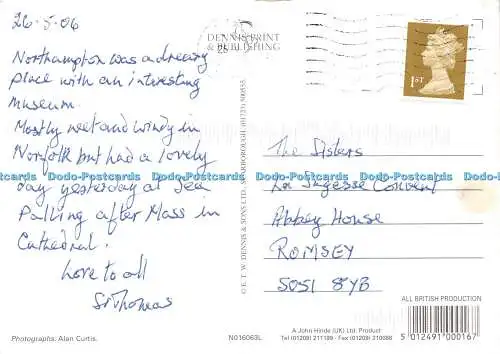 26-5-06
Northampton was a dreary
place with an interesting
museum.
Mostly wet and windy in
Norfolk but had a lovely
day yesterday at Sea
Palling after Mass in
Cathedral.
Love to all
Sr Thomas
Photographs: Alan Curtis.
DENNIS PRINT
& PUBLISHING
© E. T. W. DENNIS & SONS LTD., SCARBOROUGH. (01723) 500555
N016063L
1ST
The Sisters
La Sagesse Convent
Abbey House
ROMSEY
SO51 8YB
ALL BRITISH PRODUCTION
A John Hinde (UK) Ltd. Product
Tel (01209) 211189 · Fax (01209) 210088
5 012491 000167
Dodo-Postcards Dodo-Postcards Dodo-Postcards Dodo-Postcards Dodo-Postcards